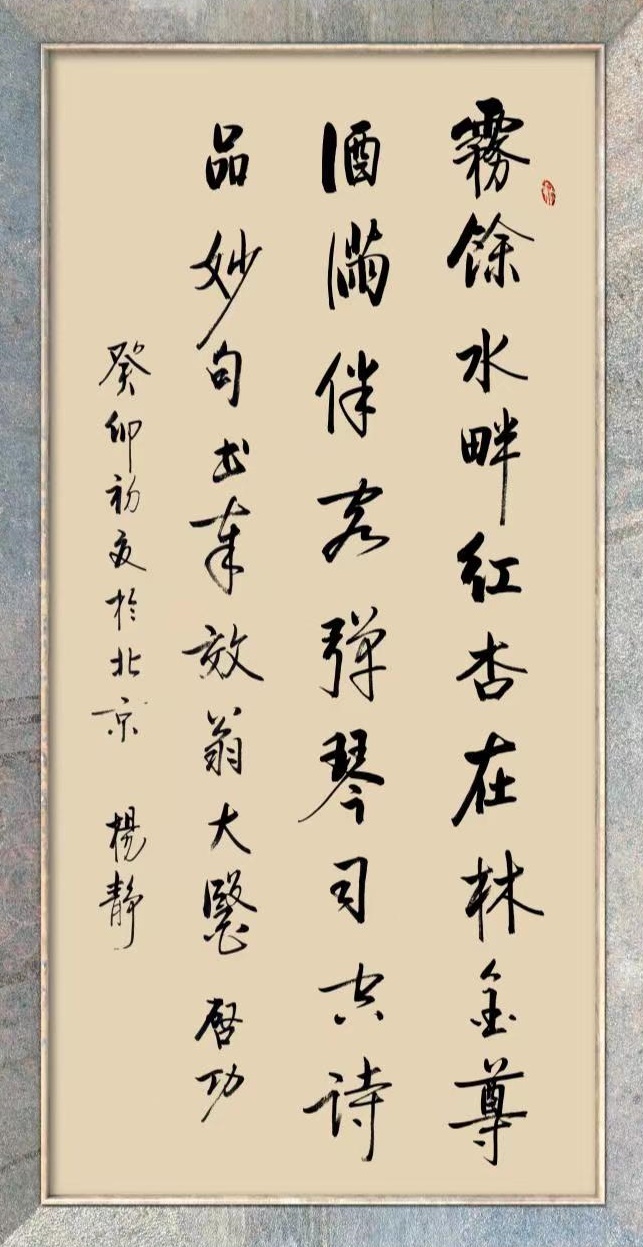 霧餘水畔紅杏在林金尊
酒滿伴客彈琴司空詩
品妙句书奉效翁大醫 啓功
癸卯初夏於北京 楊靜